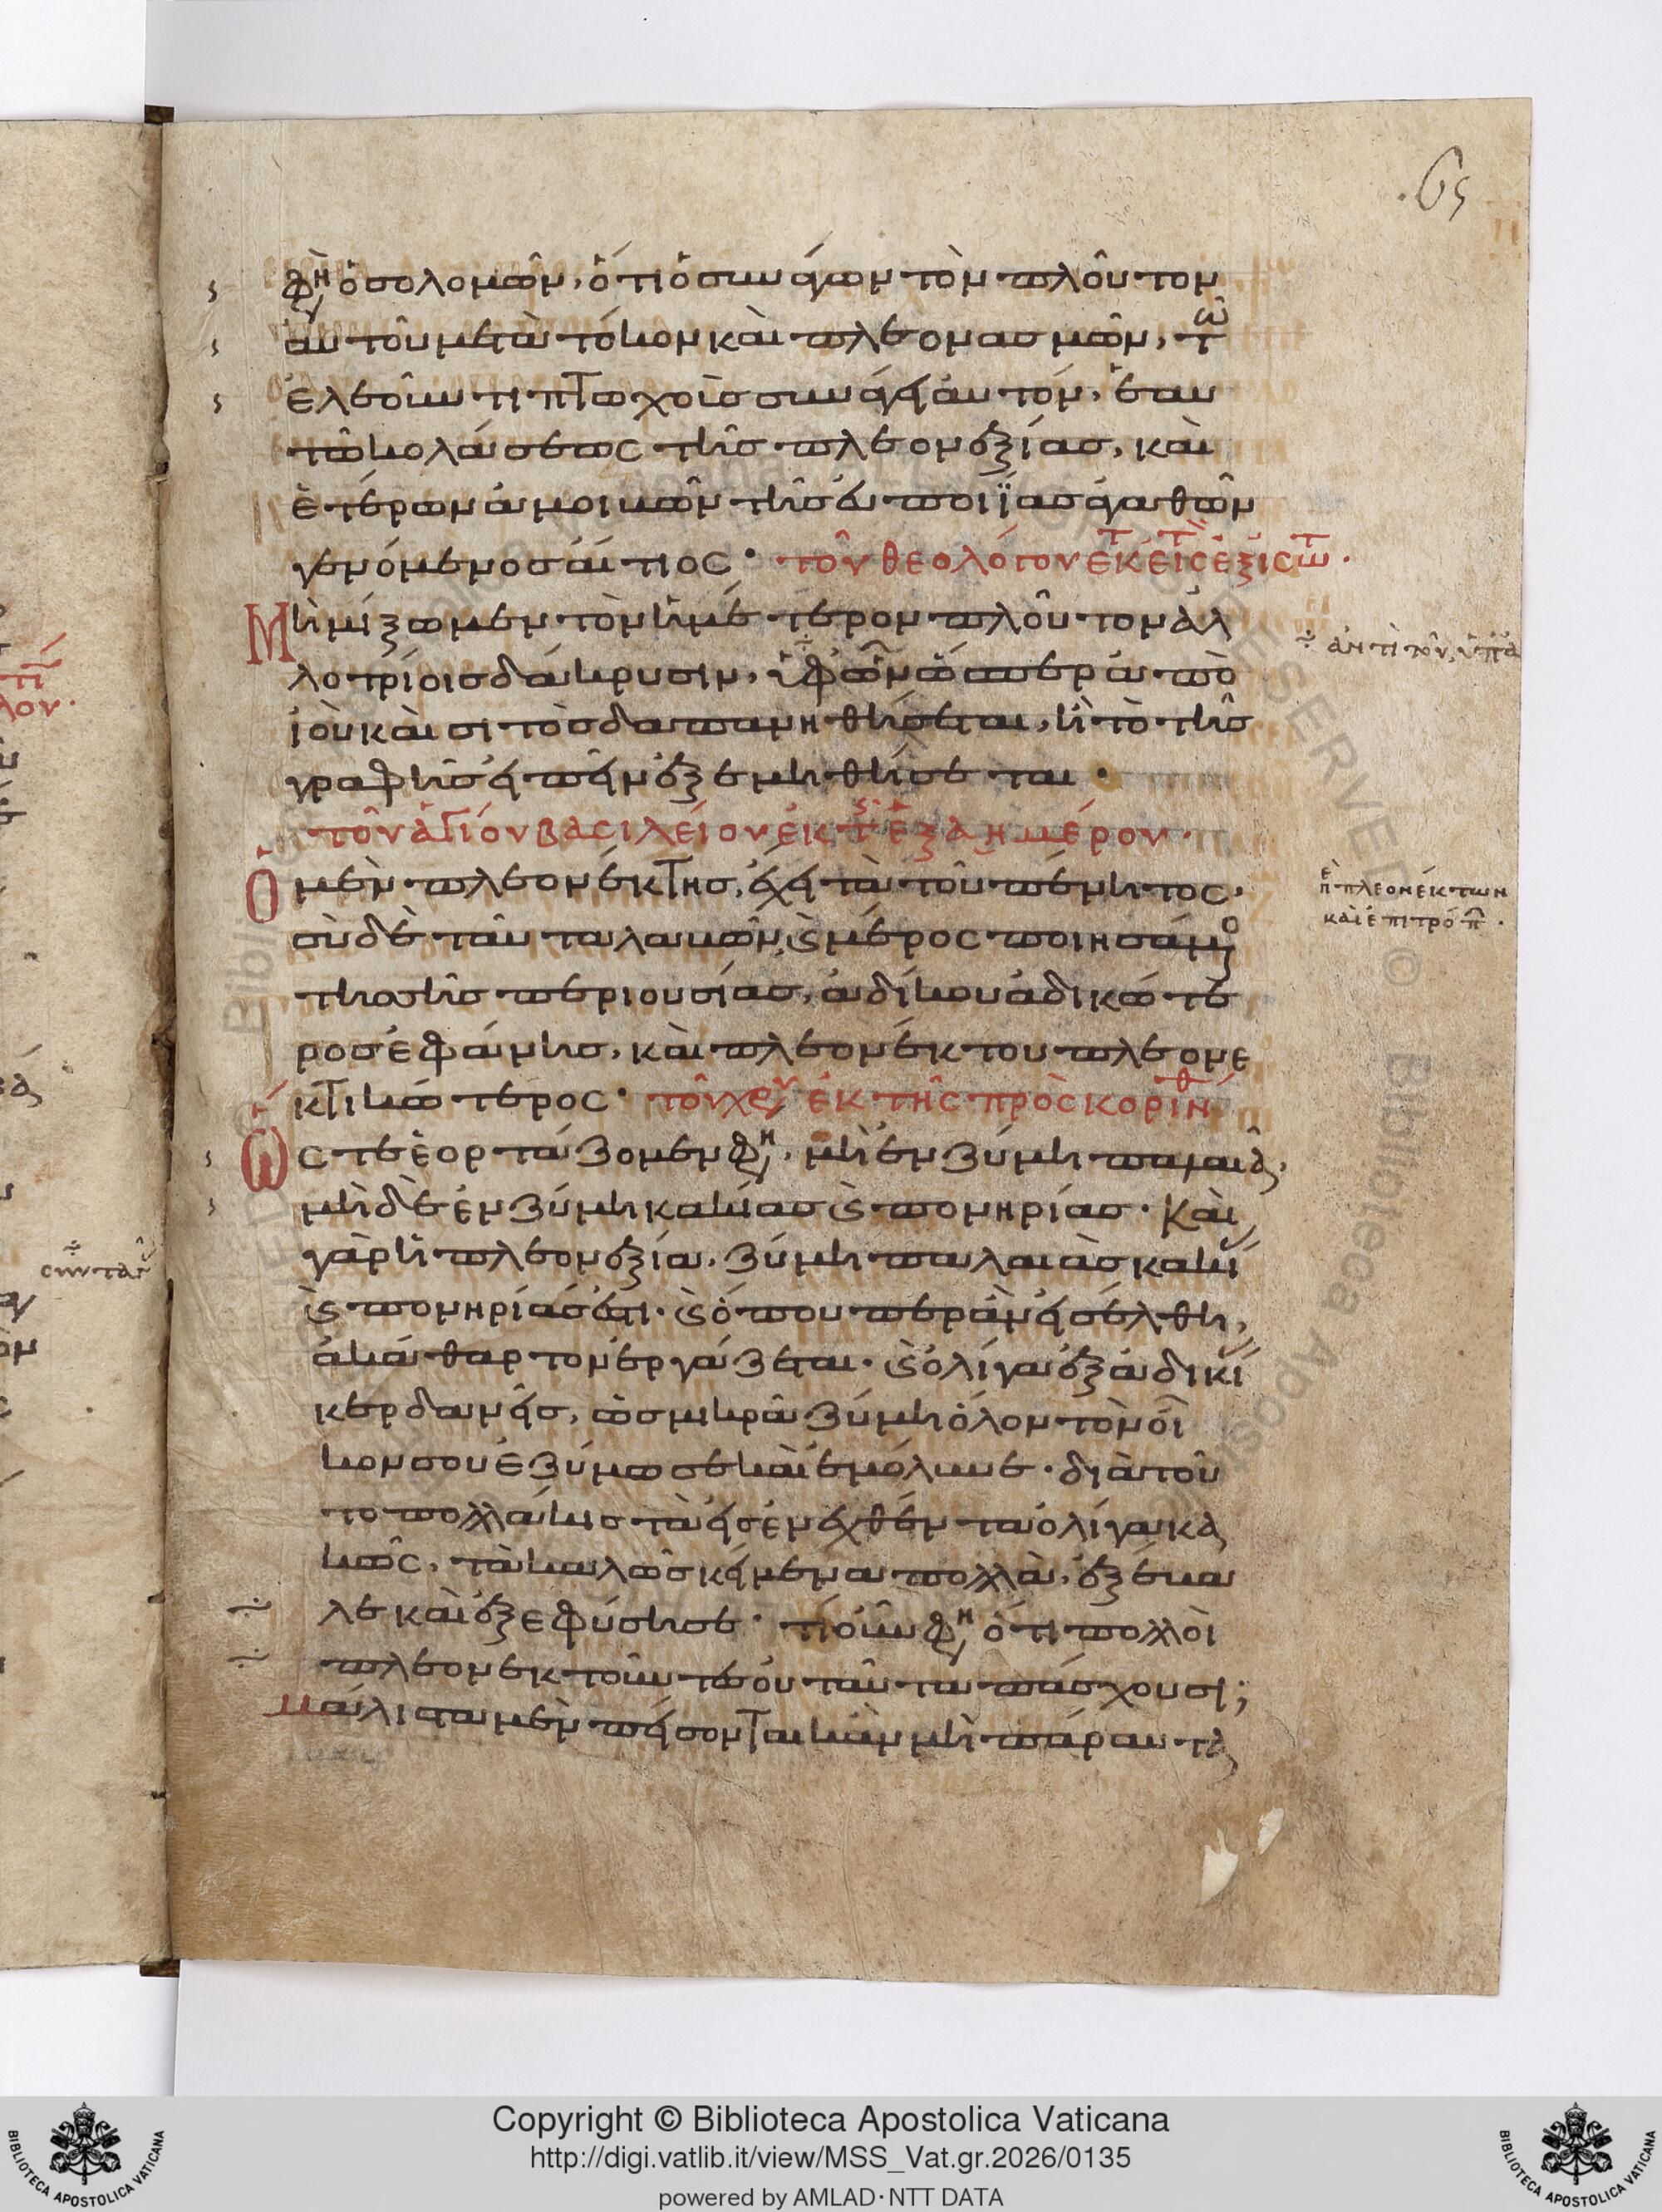 .65
φη ὁ σολομῶν, ὅτι ὁ συνάγων τὸν πλοῦτον
αὐτοῦ μετὰ τόκων καὶ πλεονασμῶν, τῶ
ἐλεοῦντι πτωχοὺς συνάγει αὐτόν. ἔσται
τῶ κολάσεως τῆς πλεονεξίας, καὶ
ἑτέρων ἀνοικῶν τῆς εὐποιΐας ἀγαθῶν
γενόμενος αἴτιος · τοῦ θεολόγου ἐκ τ εἰς τ ἐξισωτ ·
Μὴ μίξωμεν τὸν ἡμέτερον πλοῦτον ἀλ
λοτρίοις δάκρυσιν, ὑφ ὧν ὥσπερ ὑπὸ
ἰοῦ καὶ σητὸς δαπανηθήσεται, ἢ τὸ τῆς
γραφῆς εἰπεῖν ἐξεμηθήσεται ·
τοῦ ἁγίου βασιλείου ἐκ τ ἑξαημέρου ·
Ὁ μὲν πλεονέκτης, ἔχει τὰ τοῦ πένητος ·
σὺ δὲ τῶν ταλαικῶν, ϗ μέρος ποιησάμενο
τῆς σῆς περιουσίας, ἀδίκου ἀδικώτε
ρος ἐφάνης, καὶ πλεονέκτου πλεονε
κτικώτερος · τοῦ χρ ἐκ τῆς πρὸς κορινθ
Ὥστε ἑορτάζομεν φη, μὴ ἐν ζύμη παλαιᾶ,
μὴ δὲ ἐν ζύμη κακίας ϗ πονηρίας · Καὶ
γὰρ ἡ πλεονεξία, ζύμη παλαιὰς κακί
ϗ πονηρίας ἐστι · ϗ ὅπου περ ἂν εἰσέλθη,
ἀκάθαρτον ἐργάζεται · ϗ ὀλίγα ἐξ ἀδικί
κερδανεῖς, ὡς μικρᾶ ζύμη ὅλον τὸν οἶ
κον σου ἐζύμωσε καὶ ἐμόλυνε · διὰ τοῦ
το πολλάκις τὰ εἰσενεχθέντα ὀλίγα κα
κῶς, τὰ καλῶς κείμενα πολλὰ, ἐξέβα
λε καὶ ἐξεφύσησε · τί οὖν φη ὅτι πολλοὶ
πλεονεκτοῦντες οὐ ταῦτα πάσχουσι;
μάλιστα μὲν πείσονται κἂν μὴ παραυτα
ἀντὶ τοῦ, ὑπὰ
π πλεονεκτων
καὶ ἐπιτρόπ ·
Copyright © Biblioteca Apostolica Vaticana
http://digi.vatlib.it/view/MSS_Vat.gr.2026/0135
powered by AMLAD·NTT DATA
BIBLIOTECA APOSTOLICA VATICANA
BIBLIOTECA APOSTOLICA VATICANA